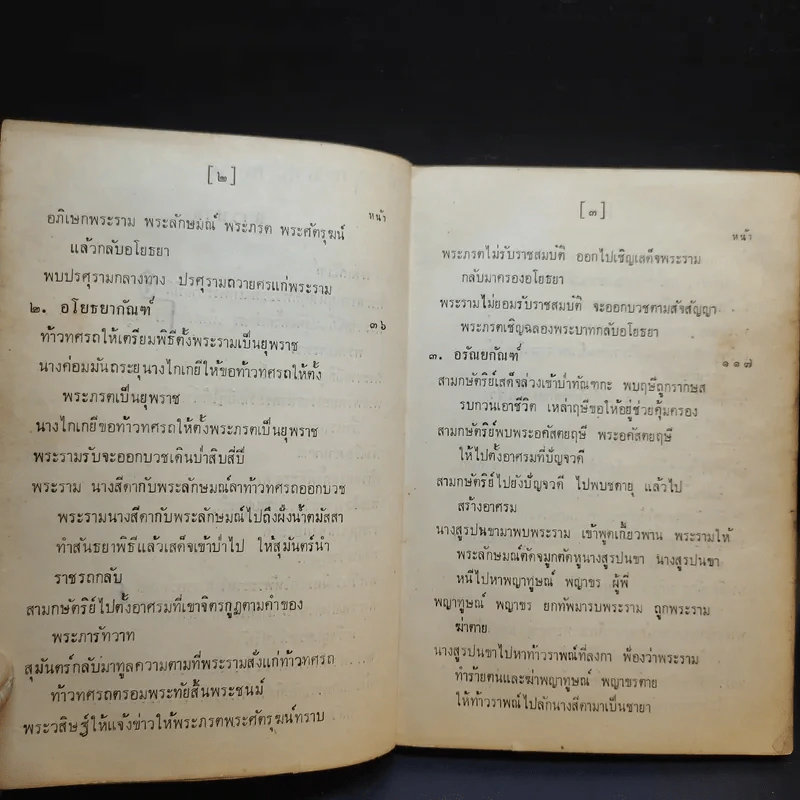 [๒]
หน้า
อภิเษกพระราม พระลักษมณ์ พระภรต พระศัตรุฆน์
แล้วกลับอโยธยา
พบปรศุรามกลางทาง ปรศุรามถวายศรแก่พระราม
๒. อโยธยากัณฑ์ ๓๖
ท้าวทศรถให้เตรียมพิธีตั้งพระรามเป็นยุพราช
นางค่อมมันถระยุนางไกเกยีให้ขอท้าวทศรถให้ตั้ง
พระภรตเป็นยุพราช
นางไกเกยีขอท้าวทศรถให้ตั้งพระภรตเป็นยุพราช
พระรามรับจะออกบวชเดินป่าสิบสี่ปี
พระราม นางสีดากับพระลักษมณ์ลาท้าวทศรถออกบวช
พระรามนางสีดากับพระลักษมณ์ไปถึงฝั่งน้ำตมัสสา
ทำสันธยาพิธีแล้วเสด็จเข้าป่าไป ให้สุมันตร์นำ
ราชรถกลับ
สามกษัตริย์ไปตั้งอาศรมที่เขาจิตรกูฏตามคำของ
พระภารัทวาท
สุมันตร์กลับมาทูลความตามที่พระรามสั่งแก่ท้าวทศรถ
ท้าวทศรถตรอมพระทัยสิ้นพระชนม์
พระวสิษฐ์ให้แจ้งข่าวให้พระภรตพระศัตรุฆน์ทราบ
[๓]
หน้า
พระภรตไม่รับราชสมบัติ ออกไปเชิญเสด็จพระราม
กลับมาครองอโยธยา
พระรามไม่ยอมรับราชสมบัติ จะออกบวชตามสัจสัญญา
พระภรตเชิญฉลองพระบาทกลับอโยธยา
๓. อรัณยกัณฑ์ ๑๑๗
สามกษัตริย์เสด็จล่วงเข้าป่าทัณฑกะ พบฤษีถูกรากษส
รบกวนเอาชีวิต เหล่าฤษีขอให้อยู่ช่วยคุ้มครอง
สามกษัตริย์พบพระอคัสตยฤษี พระอคัสตยฤษี
ให้ไปตั้งอาศรมที่ปัญจวดี
สามกษัตริย์ไปยังปัญจวดี ไปพบชตายุ แล้วไป
สร้างอาศรม
นางสูรปนขามาพบพระราม เข้าพูดเกี้ยวพาน พระรามให้
พระลักษมณ์ตัดจมูกตัดหูนางสูรปนขา นางสูรปนขา
หนีไปหาพญาทูษณ์ พญาขร ผู้พี่
พญาทูษณ์ พญาขร ยกทัพมารบพระราม ถูกพระราม
ฆ่าตาย
นางสูรปนขาไปหาท้าวราพณ์ที่ลงกา ฟ้องว่าพระราม
ทำร้ายตนและฆ่าพญาทูษณ์ พญาขรตาย
ให้ท้าวราพณ์ไปลักนางสีดามาเป็นชายา